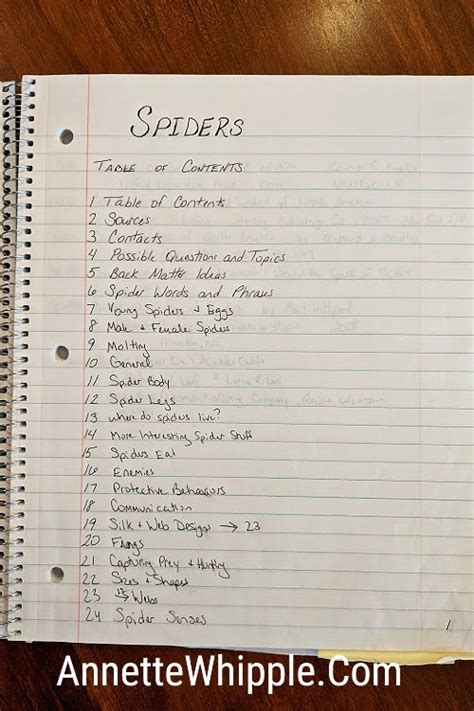 SPIDERS
TABLE OF CONTENTS
1 Table of Contents
2 Sources
3 Contacts
4 Possible Questions and Topics
5 Back Matter Ideas
6 Spider Words and Phrases
7 Young Spiders & Eggs
8 Male & Female Spiders
9 Molting
10 General
11 Spider Body
12 Spider Legs
13 where do spiders live?
14 More Interesting Spider Stuff
15 Spiders Eat
16 Enemies
17 Protective Behaviors
18 Communication
19 Silk & Web Designs → 23
20 Fangs
21 Capturing Prey & Hunting
22 Sizes & Shapes
23 → Webs
24 Spider Senses
1
AnnetteWhipple.Com